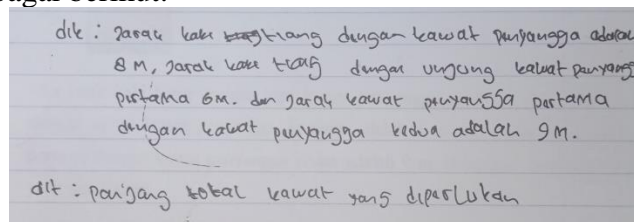 agai berikut:
dik : Jarak kaki tiang dengan kawat penyangga adalah
8 M, Jarak kaki tiang dengan ujung kawat penyangga
pertama 6M. dan Jarak kawat penyangga pertama
dengan kawat penyangga kedua adalah 9 M.
dit : panjang total kawat yang diperlukan